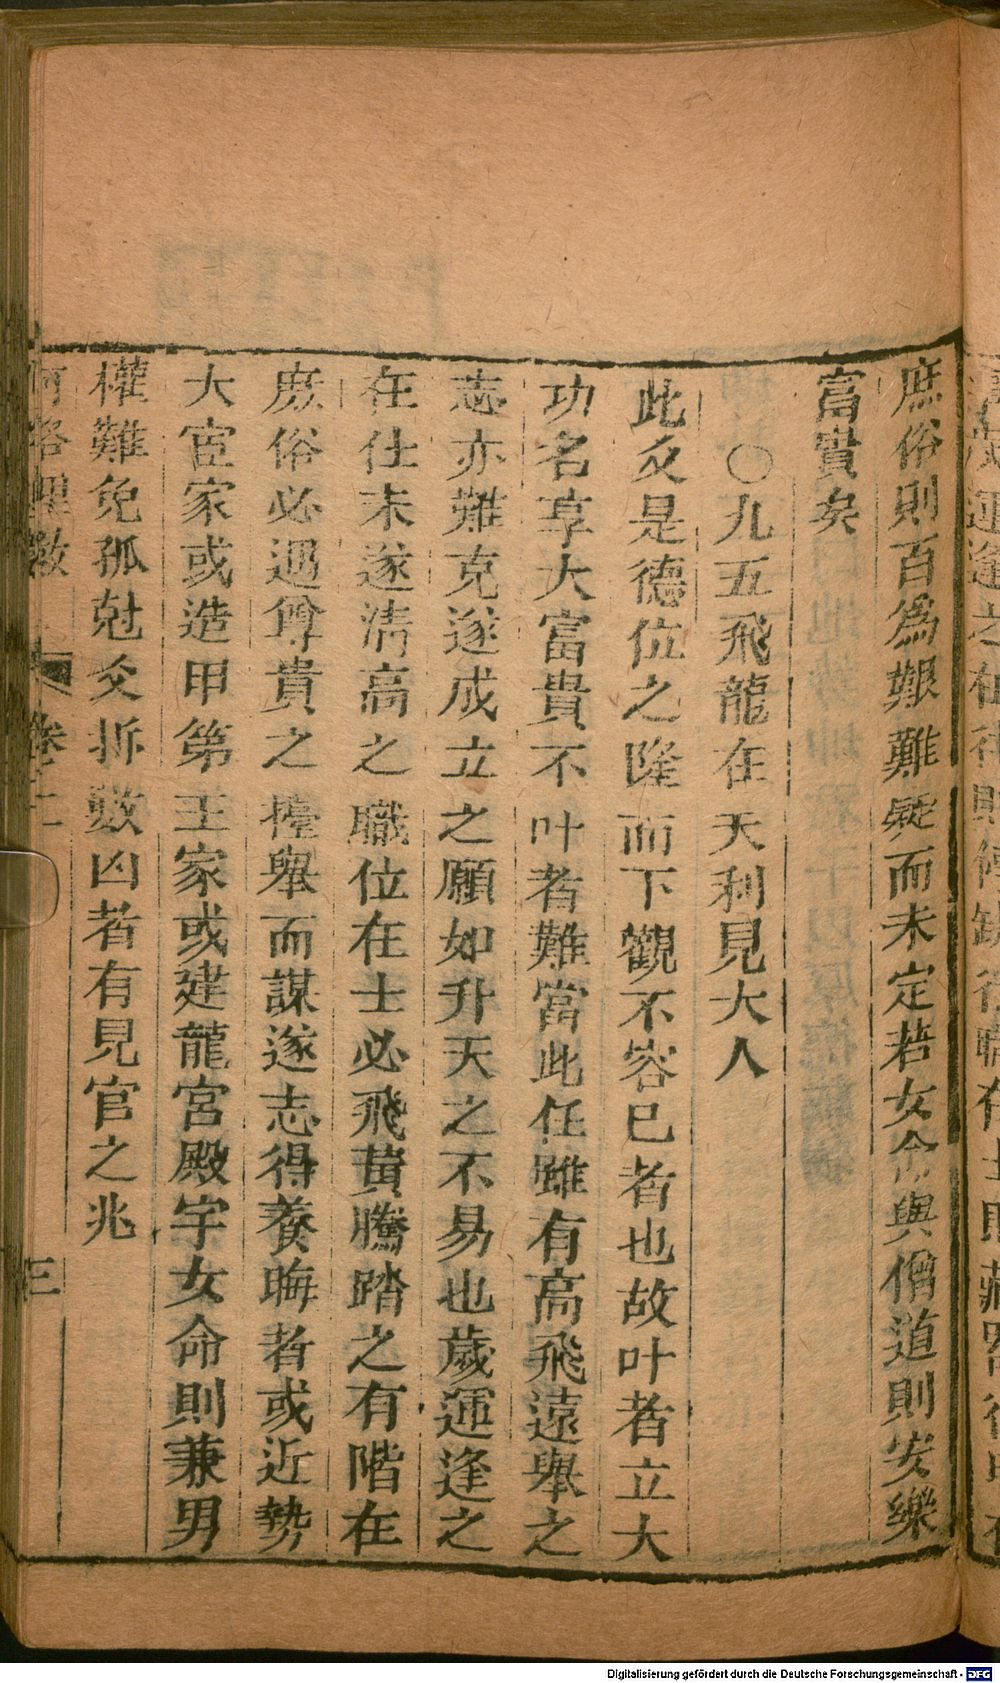 庶俗則百為艱難疑而未定若女命與僧道則安樂
富貴矣
○九五飛龍在天利見大人
此爻是德位之隆而下觀不容已者也故叶者立大
功名享大富貴不叶者難當此任雖有高飛遠舉之
志亦難克遂成立之願如升天之不易也歲運逢之
在仕未遂清高之職位在士必飛黃騰踏之有階在
庶俗必遇尊貴之擡舉而謀遂志得養晦者或近勢
大宦家或造甲第王家或建龍宮殿宇女命則兼男
權難免孤尅爻拆數凶者有見官之兆
河洛理數 卷二 三
Digitalisierung gefördert durch die Deutsche Forschungsgemeinschaft - DFG